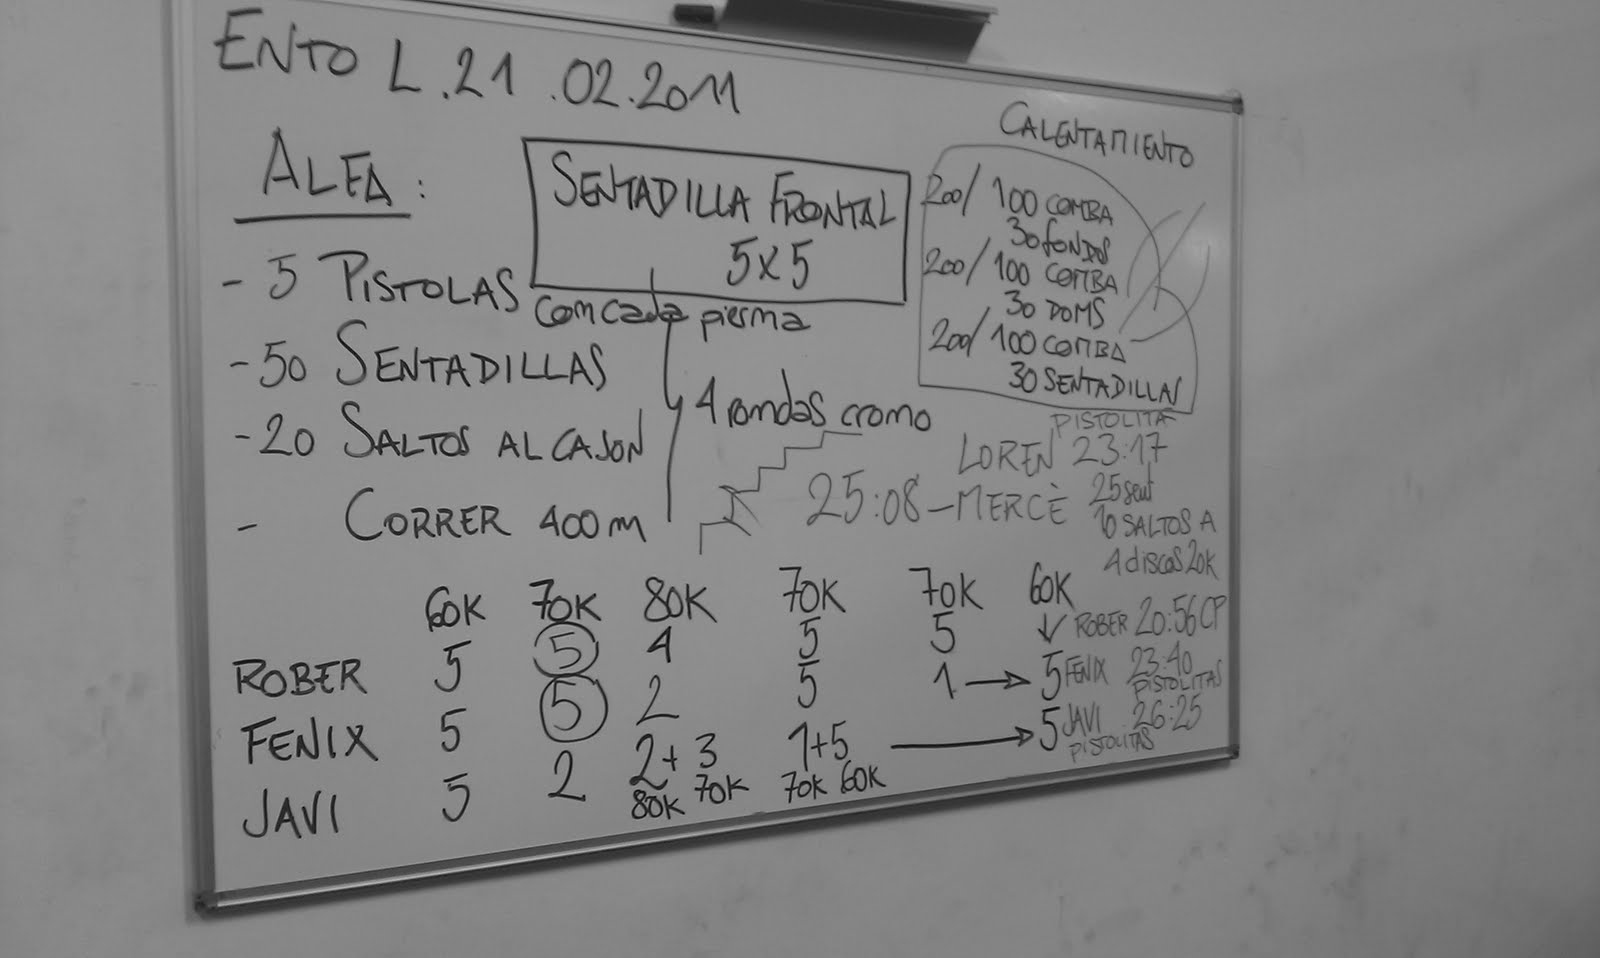 ENTO L.21.02.2011
ALEA:
- 5 PISTOLAS con cada pierna
- 50 SENTADILLAS
- 20 SALTOS AL CAJON
- CORRER 400m
4 rondas crono
SENTADILLA FRONTAL
5x5
CALENTAMIENTO
200/100 COMBA
30 FONDOS
200/100 COMBA
30 DOMS
200/100 COMBA
30 SENTADILLAS
PISTOLITAS
LOREN 23:17
25:08-MERCÈ 25 sent
10 SALTOS A
4 discos 20K
60K 70K 80K 70K 70K 60K
ROBER 5 5 4 5 5 ROBER 20:56 CP
FENIX 5 5 2 5 1 → 5 FENIX 23:40
PISTOLITAS
JAVI 5 2 2+3 1+5 → 5 JAVI 26:25
80K 70K 70K 60K PISTOLITAS